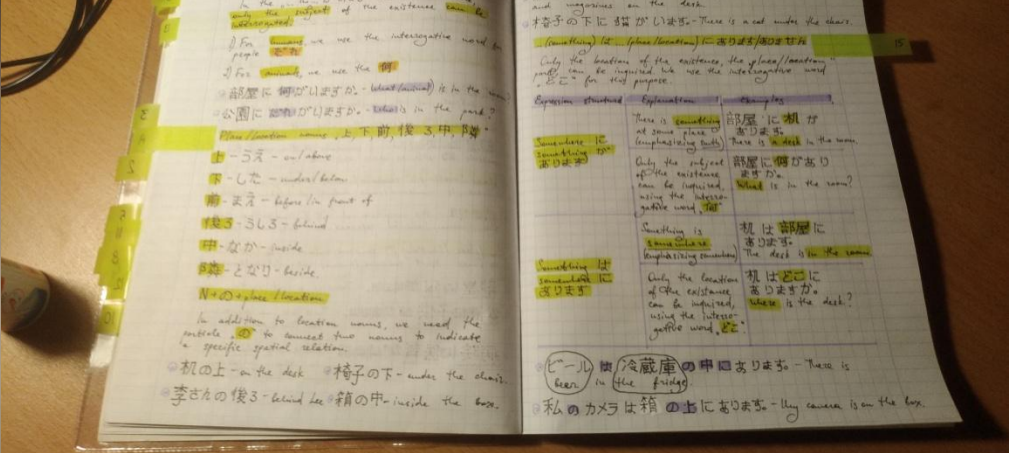 only the subject of the existence can be
interrogated.
1) For humans, we use the interrogative word for
people だれ
2) For animals, we use the 何
部屋に何がいますか。- What (animal) is in the room?
公園に だれがいますか。- Who is in the park?
Place/location nouns, 上, 下, 前, 後ろ, 中, 隣
上 - うえ - on/above
下 - した - under/below
前 - まえ - before/in front of
後ろ - うしろ - behind
中 - なか - inside
隣 - となり - beside
N + の + place/location
In addition to location nouns, we need the
particle の to connect two nouns to indicate
a specific spatial relation.
机の上 - on the desk 椅子の下 - under the chair.
李さんの後ろ - behind Lee 箱の中 - inside the box.
and magazines on the desk.
椅子の下に猫がいます。- There is a cat under the chair.
(something) は (place/location) にあります/ありません
15
Only the location of the existence, the place/location
can be inquired. We use the interrogative word
"どこ" for this purpose.
Expression structure Explanation Examples
Somewhere に
something が
あります
There is something
at some place
(emphasizing smth)
部屋に机が
あります。
There is a desk in the room.
Only the subject
of the existence
can be inquired,
using the interro-
gative word 何
部屋に何があり
ますか。
What is in the room?
Something は
somewhere に
あります
Something is
somewhere
(emphasizing somewhere)
机は部屋に
あります。
The desk is in the room.
Only the location
of the existence
can be inquired,
using the interro-
gative word, どこ
机はどこに
ありますか。
Where is the desk?
ビールは冷蔵庫の中にあります。- There is
beer in the fridge
私のカメラは箱の上にあります。- My camera is on the box.